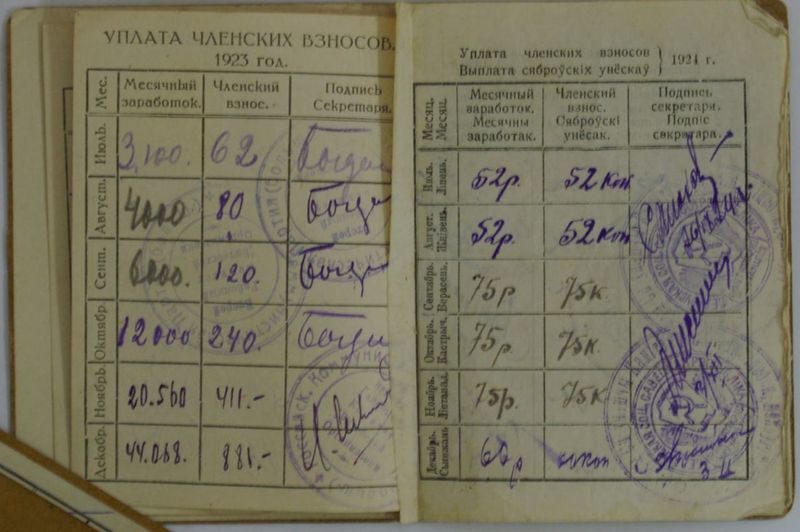 УПЛАТА ЧЛЕНСКИХ ВЗНОСОВ.
1923 год.
Мес. Месячный заработок. Членский взнос. Подпись Секретаря.
Июль. 3,100. 62
Август. 4000 80
Сент. 6000. 120.
Октябр. 12000 240.
Ноябрь. 20.560 411.-
Декабр. 44.068. 881.-
Уплата членских взносов
Выплата сяброўскіх унёскаў
1924 г.
Месяц. Месяц. Месячный заработок. Месячны заработак. Членский взнос. Сяброўскі унёсак. Подпись секретаря. Подпіс сакратара.
Июль. Ліпень. 52р. 52 коп
Август. Жнівень. 52р. 52 коп
Сентябрь. Верасень. 75р 75к.
Октябрь. Кастрыч. 75р. 75к.
Ноябрь. Летапад. 75р. 75к.
Декабрь. Сьнежань 60р